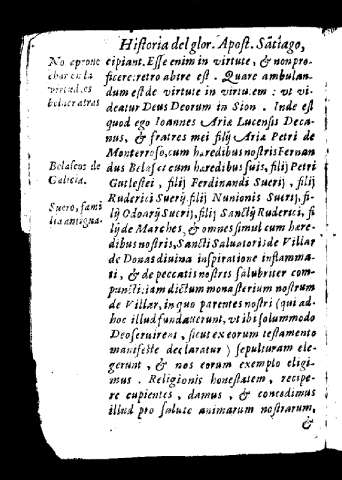 Historia del glor. Apost. Sãtiago,
No aprone
char en la
virtud, es
bolver atras
Belascos de
Galicia.
Suero, fami
lia antigua.
cipiant. Esse enim in virtute, & non pro-
ficere: retro abire est. Quare ambulan-
dum est de virtute in virtutem: vt vi-
deatur Deus Deorum in Sion. Inde est
quod ego Ioannes Ariæ Lucensis Deca-
nus, & fratres mei filij Ariæ Petri de
Monterroso, cum hæredibus nostris Fernan
dus Belasci cum hæredibus suis, filij Petri
Gutlestei, filij Ferdinandi Suerij, filij
Ruderici Suerij, filij Nunionis Suerij, fi-
lij Odoarij Suerij, filij Sanctij Ruderici, fi
lij de Marches, & omnes simul cum hære-
dibus nostris, Sancti Saluatoris de Villar
de Donas diuina inspiratione inflamma-
ti, & de peccatis nostris salubriter com-
puncti: iam dictum monasterium nostrum
de Villar, in quo parentes nostri (qui ad-
hoc illud fundauerunt, vt ibi solummodo
Deo seruirent, sicut ex eorum testamento
manifeste declaratur) sepulturam ele-
gerunt, & nos eorum exemplo eligi-
mus. Religionis honestatem, recipe-
re cupientes, damus, & concedimus
illud pro salute animarum nostrarum,
&